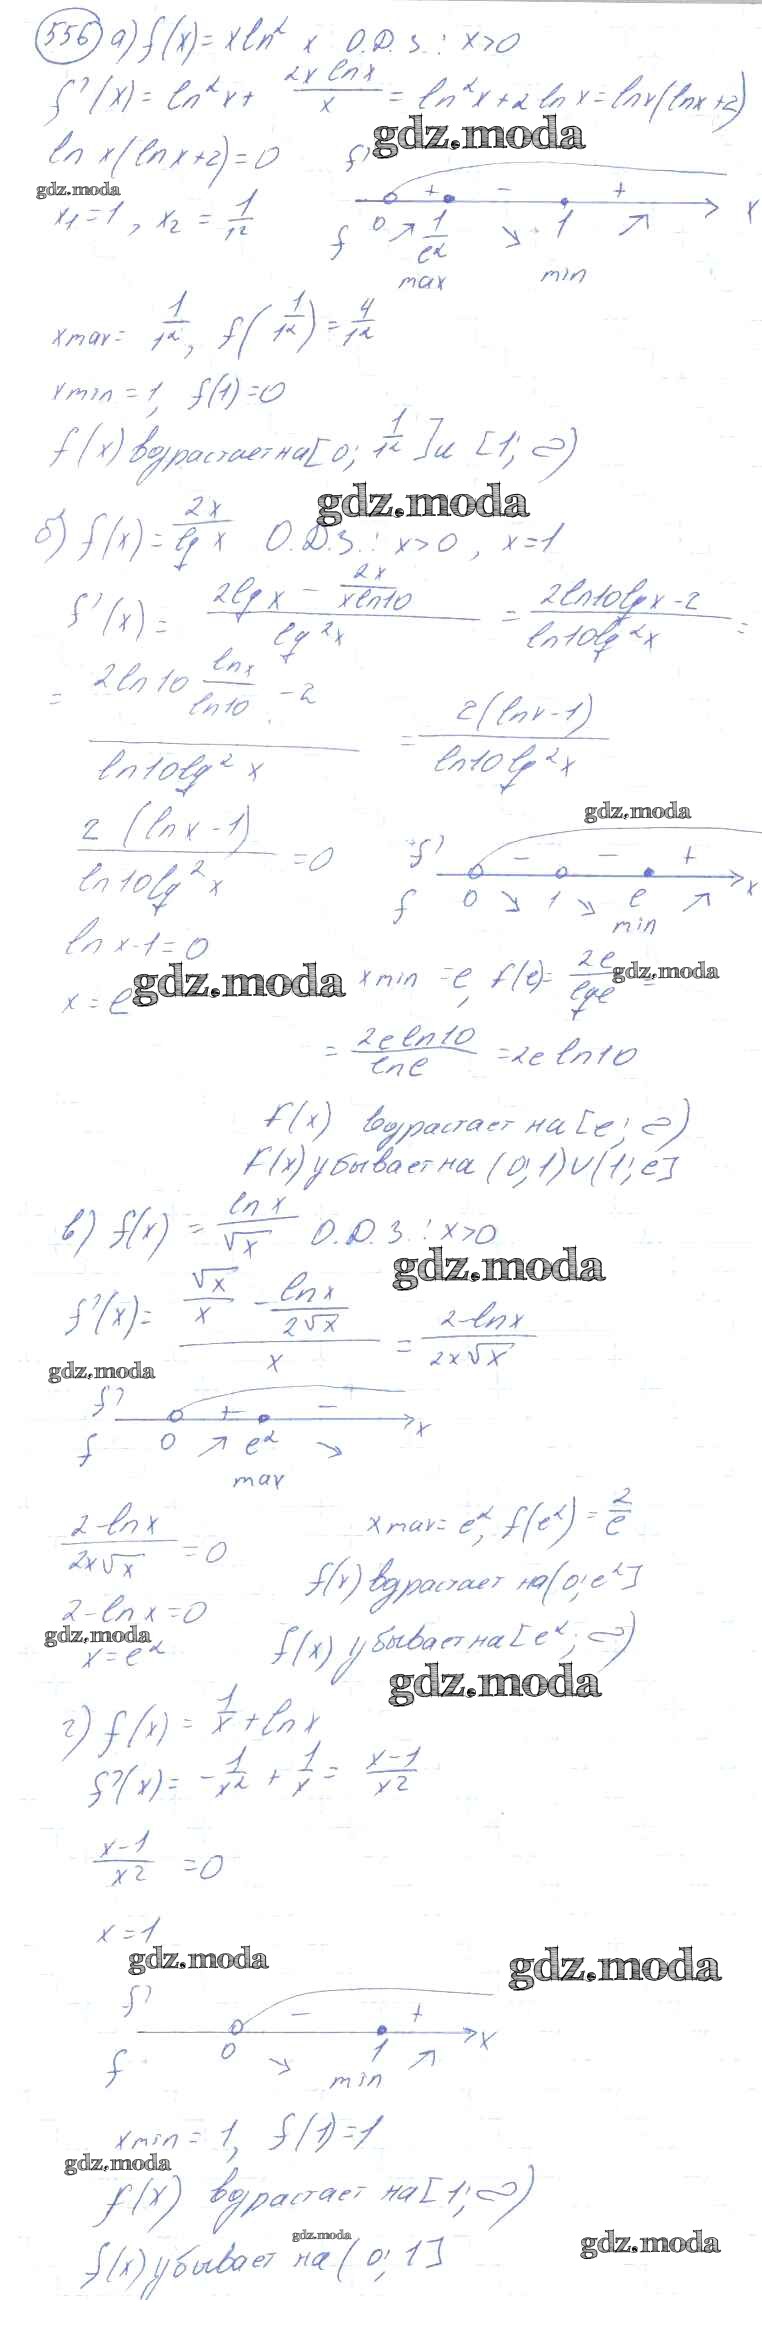 556 а) f(x) = x ln² x О.Д.З.: x>0
f'(x) = ln²x + 2x lnx / x = ln²x + 2 ln x = lnx(lnx+2)
gdz.moda
ln x(ln x+2)=0
gdz.moda
x₁=1, x₂ = 1/1²
f' + - + x
f 0 ↗ 1/e² ↘ 1 ↗
max min
xmax= 1/1², f(1/1²) = 4/1²
xmin = 1, f(1)=0
f(x) возрастает на [0; 1/1²] и [1; ∞)
gdz.moda
б) f(x) = 2x / lg x О.Д.З.: x>0, x=1
f'(x) = (2lg x - 2x / xln10) / lg²x = (2ln10lgx-2) / ln10lg²x =
= (2ln10 lnx / ln10 - 2) / ln10lg²x = 2(lnx-1) / ln10 lg²x
gdz.moda
2 (lnx-1) / ln10lg²x = 0
f' - - + x
f 0 ↘ 1 ↘ e ↗
min
ln x-1=0
x = e
gdz.moda
xmin = e, f(e)= 2e / lge =
gdz.moda
= 2e ln10 / lne = 2e ln10
f(x) возрастает на [e; ∞)
f(x) убывает на (0;1)∪(1;e]
в) f(x) = ln x / √x О.Д.З.: x>0
gdz.moda
f'(x) = (√x / x - lnx / 2√x) / x = 2-lnx / 2x√x
gdz.moda
f' + - x
f 0 ↗ e² ↘
max
2-lnx / 2x√x = 0
xmax= e², f(e²) = 2/e
f(x) возрастает на (0; e²]
2-ln x=0
gdz.moda
x=e²
f(x) убывает на [e²; ∞)
gdz.moda
г) f(x) = 1/x + ln x
f'(x) = -1/x² + 1/x = x-1 / x²
x-1 / x² = 0
x=1
gdz.moda
gdz.moda
f' - + x
f 0 ↘ 1 ↗
min
xmin = 1, f(1)=1
gdz.moda
f(x) возрастает на [1; ∞)
gdz.moda
gdz.moda
f(x) убывает на (0; 1]